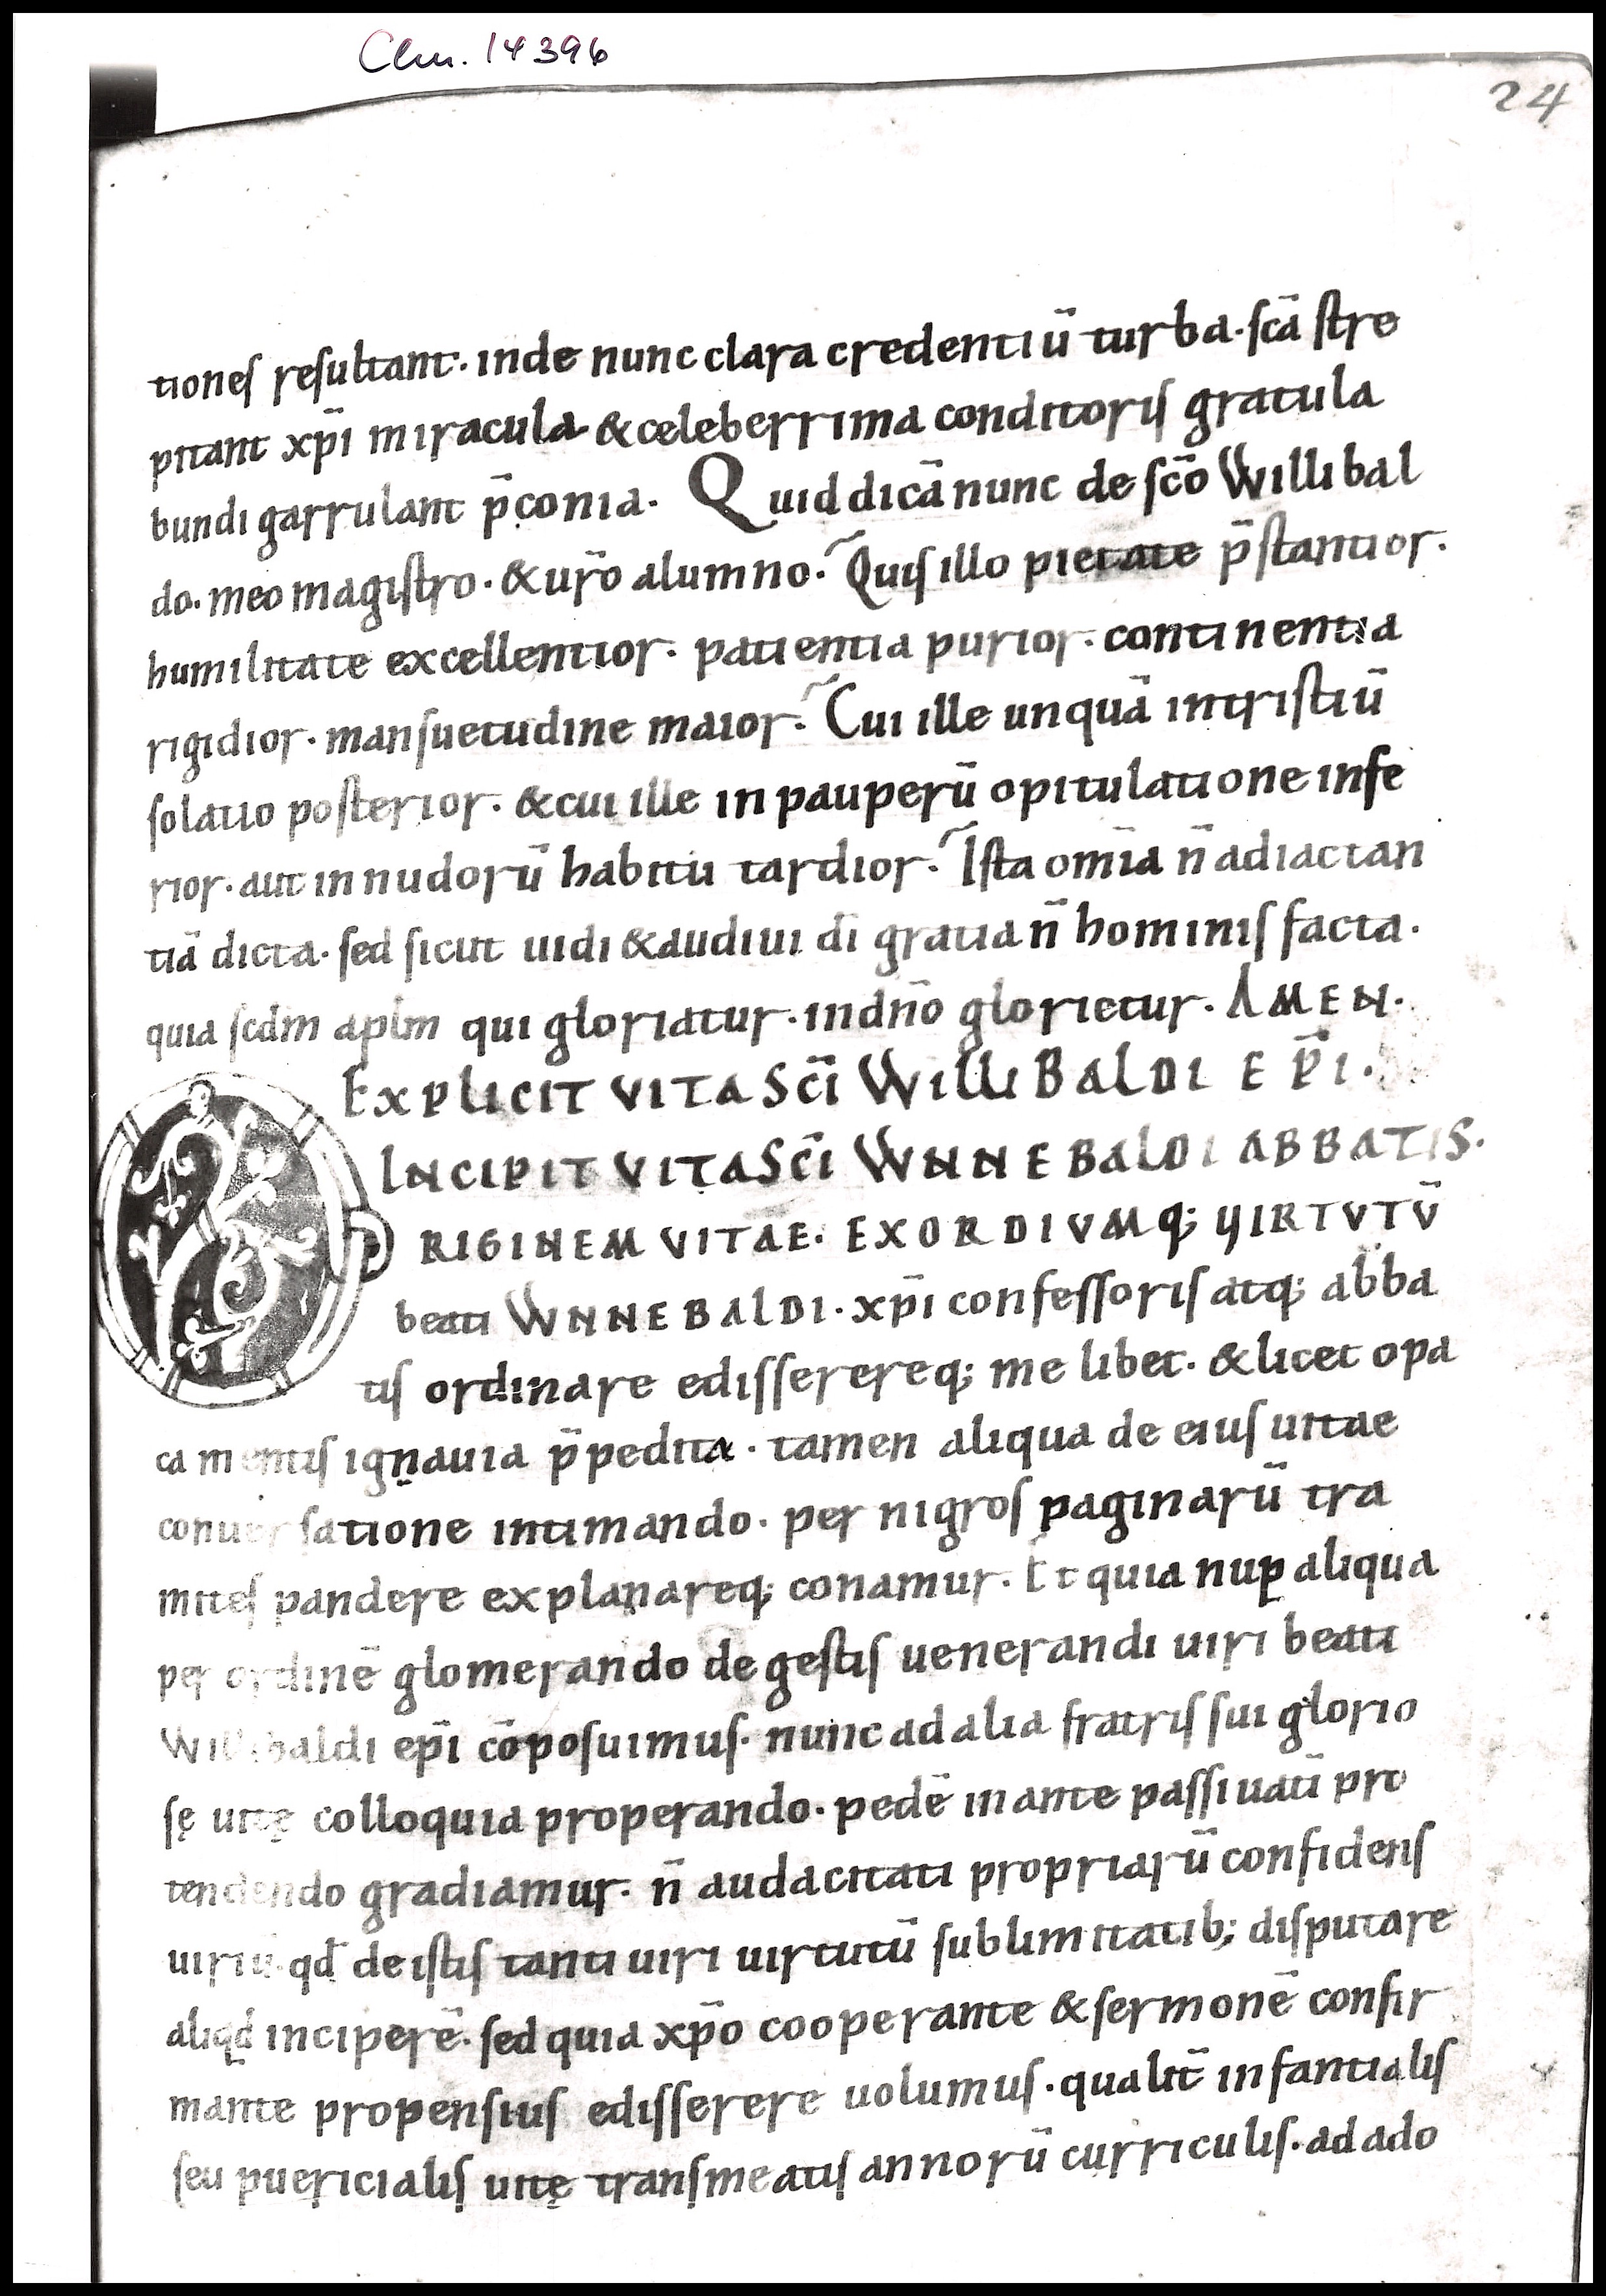 Clm. 14396
24
tiones resultant. inde nunc clara credentiū turba. scā stre
pitant xp̄i miracula & celeberrima conditoris gratula
bundi garrulant p̄conia. Quid dicā nunc de sc̄o Willibal
do. meo magistro. & ur̄o alumno? Quis illo pietate p̄stantior.
humilitate excellentior. patientia purior. continentia
rigidior. mansuetudine maior? Cui ille unquā intristiū
solatio posterior. & cui ille in pauperū opitulatione infe
rior. aut in nudorū habitu tardior? Ista om̄ia n̄ ad iactan
tiā dicta. sed sicut uidi & audiui dī gratia n̄ hominis facta.
quia scdm aplm qui gloriatur. in dn̄o glorietur. AMEN.
EXPLICIT VITA SC̄I WILLIBALDI EP̄I.
INCIPIT VITA SC̄I WNNEBALDI ABBATIS.
ORIGINEM VITAE. EXORDIVMQ; VIRTVTŪ
beati WNNEBALDI. xp̄i confessoris atq; abba
tis ordinare edisserereq; me libet. & licet opa
ca mentis ignauia p̄pedita. tamen aliqua de eius uitae
conuersatione intimando. per nigros paginarū tra
mites pandere explanareq; conamur. Et quia nuꝑ aliqua
per ordinē glomerando de gestis uenerandi uiri beati
Willibaldi ep̄i cōposuimus. nunc ad alia fratris sui glorio
sę uitę colloquia properando. pedē in ante passiuatī pro
tendendo gradiamur. n̄ audacitati propriarū confidens
uiriū. qđ de istis tanti uiri uirtutū sublimitatib; disputare
aliqđ inciperē. sed quia xp̄o cooperante & sermonē confir
mante propensius edisserere uolumus. qualit̄ infantialis
seu puericialis uitę transmeatis annorū curriculis. ad ado